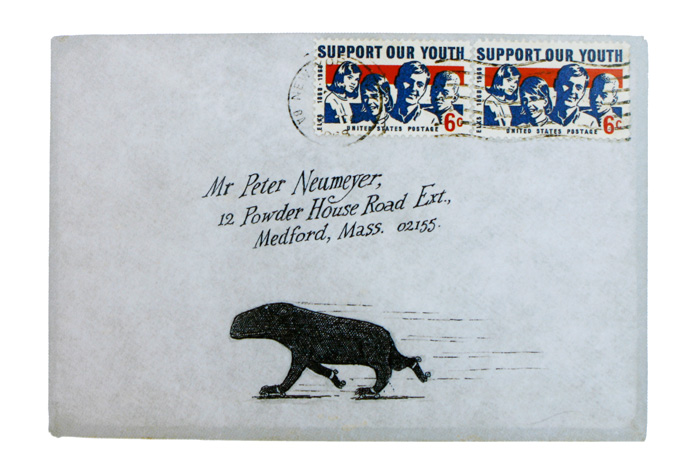 SUPPORT OUR YOUTH
ELKS 1868-1968
UNITED STATES POSTAGE
6c
SUPPORT OUR YOUTH
ELKS 1868-1968
UNITED STATES POSTAGE
6c
Mr Peter Neumeyer,
12 Powder House Road Ext.,
Medford, Mass. 02155.